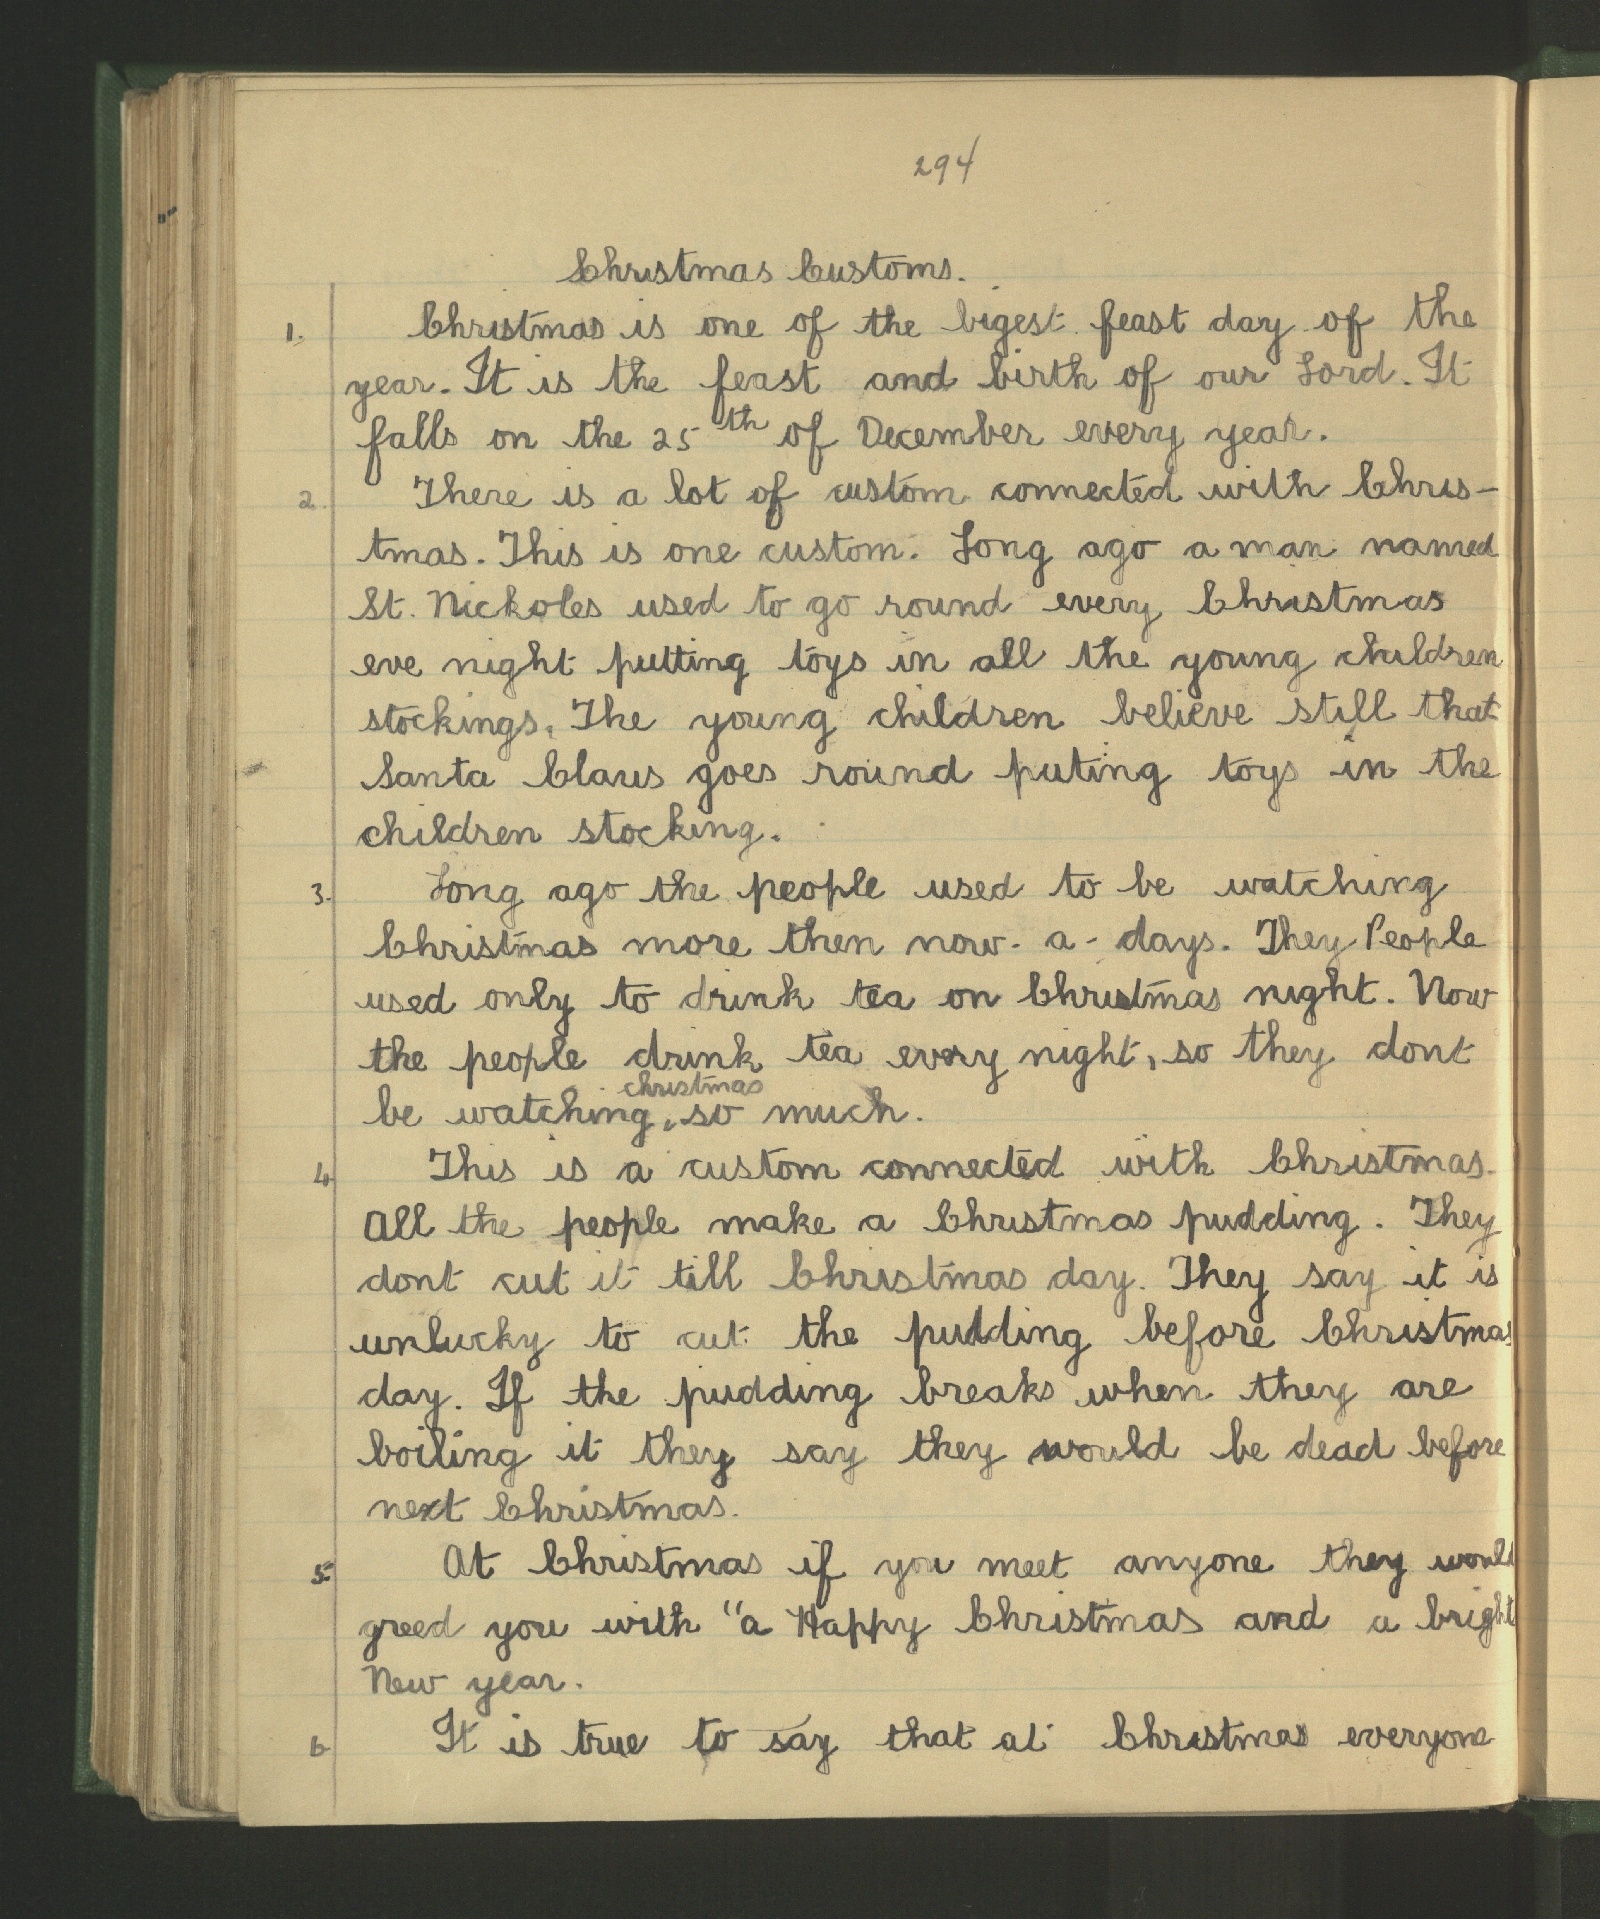 294
Christmas Customs.
1. Christmas is one of the bigest feast day of the
year. It is the feast and birth of our Lord. It
falls on the 25th of December every year.
2. There is a lot of custom connected with Chris-
tmas. This is one custom. Long ago a man named
St. Nickoles used to go round every Christmas
eve night putting toys in all the young children
stockings. The young children believe still that
Santa Claus goes round puting toys in the
children stocking.
3. Long ago the people used to be watching
Christmas more then now-a-days. They People
used only to drink tea on Christmas night. Now
the people drink tea every night, so they dont
christmas
be watching, so much.
4. This is a custom connected with Christmas.
All the people make a Christmas pudding. They
dont cut it till Christmas day. They say it is
unlucky to cut the pudding before Christmas
day. If the pudding breaks when they are
boiling it they say they would be dead before
next Christmas.
5. At Christmas if you meet anyone they would
greed you with "a Happy Christmas and a bright
New year.
6. It is true to say that at Christmas everyone